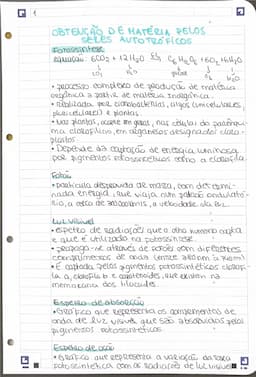 1
OBTENÇÃO DE MATÉRIA PELOS
SERES AUTOTRÓFICOS
Fotossíntese
equação: 6CO₂ + 12H₂O → C₆H₁₂O₆ + 6O₂ + 6H₂O
CO₂ H₂O O₂ H₂O
• processo complexo de produção de matéria
orgânica a partir de matéria inorgânica.
• realizada por cianobactérias, algas (unicelulares,
pluricelulares) e plantas.
• Nas plantas, ocorre nas células do parênqui-
ma clorofilino, em organelos designados cloro-
plastos.
• Depende da captação de energia luminosa
por pigmentos fotossintéticos como a clorofila.
Fotão
• partícula desprovida de massa, com determi-
nada energia, que viaja num padrão ondulató-
rio, a cerca de à velocidade da luz.
Luz visível
• espetro de radiações que o olho humano capta
e que é utilizado na fotossíntese.
• propaga-se através de fotões com diferentes
comprimentos de onda (entre 380nm a 750nm)
• É captada pelos pigmentos fotossintéticos clorofi-
la a, clorofila b e carotenoides, que existem na
membrana dos tilacoides.
Espetro de absorção
• Gráfico que representa os comprimentos de
onda de luz visível que são absorvidos pelos
pigmentos fotossintéticos.
Espetro de ação
• Gráfico que representa a variação da taxa
fotossintética com as radiações de luz visível